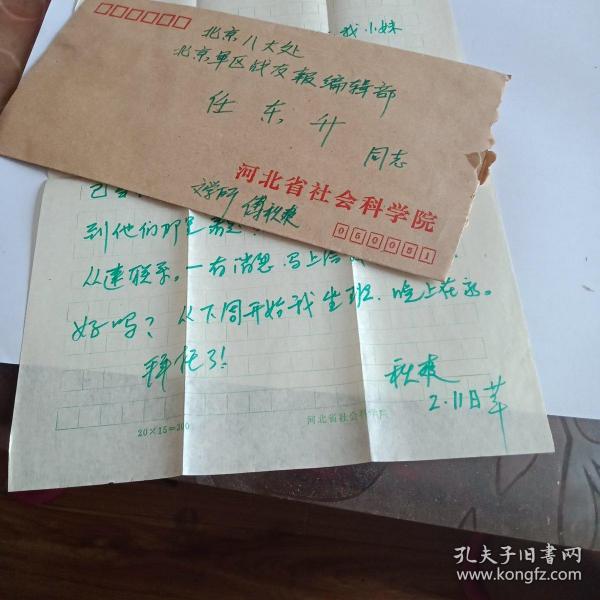 我小妹
北京八大处
北京军区战友报编辑部
任东升
同志
河北省社会科学院
文学研 傅秋爽
050051
到他们那里
从速联系。一有消息,马上
好吗?从下周开始我坐班,晚上在家。
拜托了!
秋爽
2.11日草
20×15=300
河北省社会科学院
孔夫子旧书网
www.kongfz.com